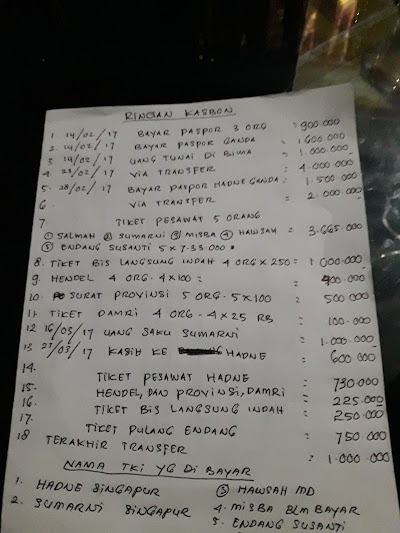 RINCIAN KASBON
1. 14/02/17 BAYAR PASPOR 3 ORG = 900.000
2. 14/02/17 BAYAR PASPOR GANDA = 1.600.000
3. 14/02/17 UANG TUNAI DI BIMA = 1.000.000
4. 23/02/17 VIA TRANSFER = 4.000.000
5. 28/02/17 BAYAR PASPOR HADNE GANDA : 1.500.000
6. VIA TRANSFER = 2.000.000
7. TIKET PESAWAT 5 ORANG
① SALMAH ② SUMARNI ③ MISBA ④ HAWSAH = 3.665.000
⑤ ENDANG SUSANTI 5 x 733.000 =
8. TIKET BIS LANGSUNG INDAH 4 ORG x 250 = 1.000.000
9. HENDEL 4 ORG . 4x100 = 400.000
10. SURAT PROVINSI 5 ORG . 5x100 = 500.000
11. TIKET DAMRI 4 ORG . 4x25 RB = 100.000
12 16/03/17 UANG SAKU SUMARNI = 1.000.000
13 23/03/17 KASIH KE HADNE = 600.000
14. TIKET PESAWAT HADNE = 730.000
15. HENDEL, DAN PROVINSI, DAMRI = 225.000
16. TIKET BIS LANGSUNG INDAH = 250.000
17. TIKET PULANG ENDANG = 750.000
18 TERAKHIR TRANSFER = 1.000.000
NAMA TKI YG DI BAYAR
1. HADNE SINGAPUR ③ HAWSAH MD
2. SUMARNI SINGAPUR 4. MISBA BLM BAYAR
5. ENDANG SUSANTI